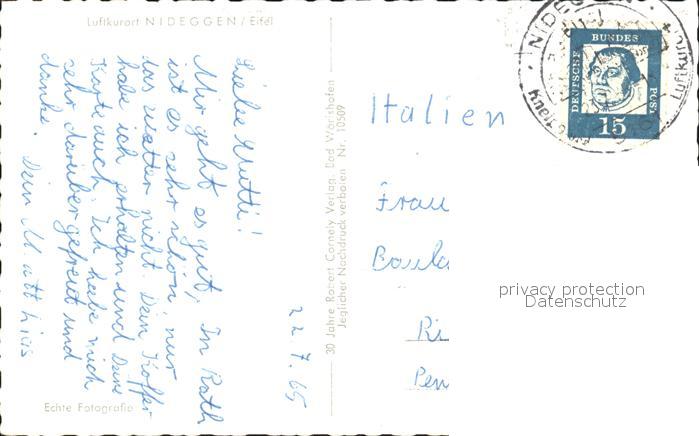 Luftkurort NIDEGGEN / Eifel
22.7.65
Liebe Mutti!
Mir geht es gut, In Rath
ist es sehr schön, nur
das wetter nicht. Dein Koffer
habe ich erhalten und Deine
Karte auch. Ich habe mich
sehr darüber gefreut und
danke. Dein Matthias
Echte Fotografie
30 Jahre Robert Cornely Verlag, Bad Wörishofen
Jeglicher Nachdruck verboten Nr. 10509
NIDEGGEN
Luftkurort
DEUTSCHE
BUNDES
POST
15
Italien
Frau
Ri
Pen
privacy protection
Datenschutz